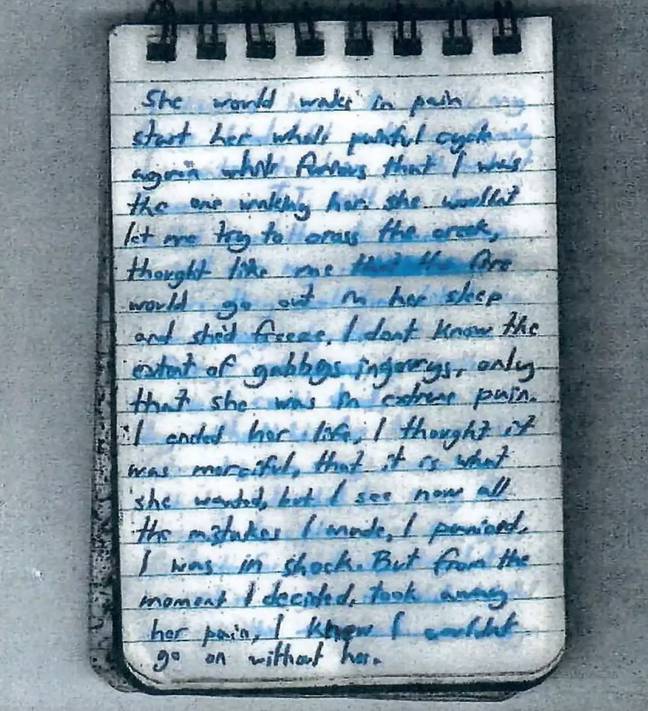 She would wake in pain
start her whole painful cycle
again while furious that I was
the one waking her. she wouldnt
let me try to cross the creek,
thought like me that the fire
would go out in her sleep
and she'd freeze. I dont know the
extent of gabbys injurys, only
that she was in extreme pain.
I ended her life, I thought it
was merciful, that it is what
she wanted, but I see now all
the mistakes I made, I panicked,
I was in shock. But from the
moment I decided, took away
her pain, I knew I couldnt
go on without her.